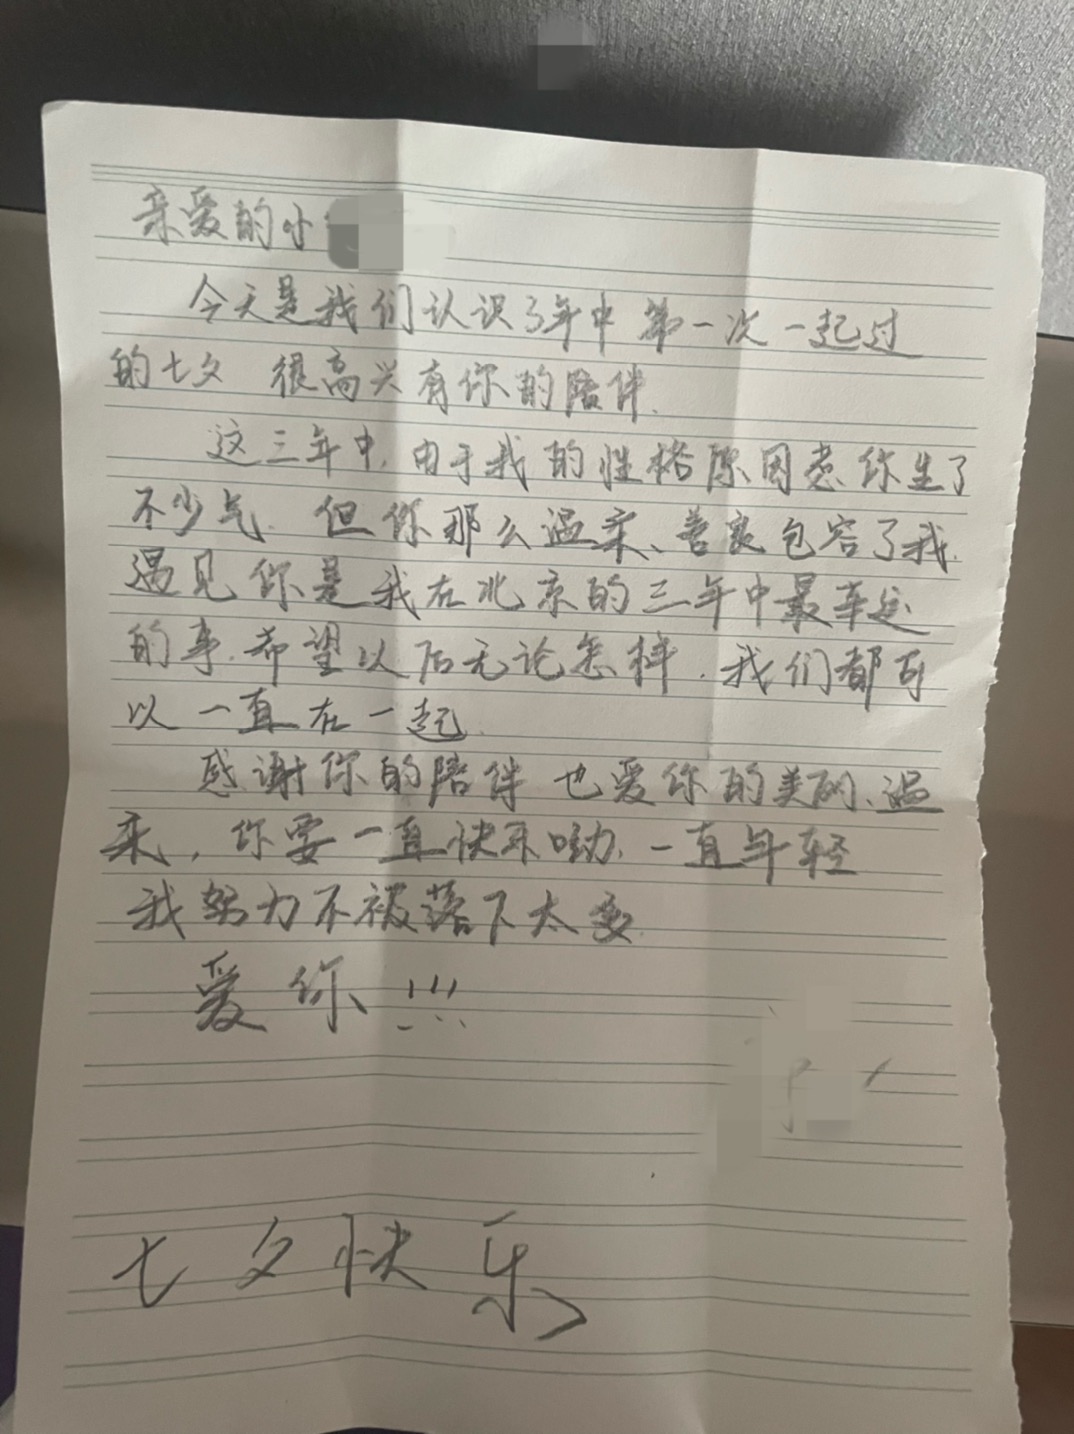 亲爱的小
今天是我们认识3年中 第一次一起过
的七夕 很高兴有你的陪伴.
这三年中,由于我的性格原因惹你生了
不少气. 但你那么温柔、善良包容了我.
遇见你是我在北京的三年中最幸运
的事.希望以后无论怎样.我们都可
以一直在一起.
感谢你的陪伴 也爱你的美丽、温
柔,你要一直快乐呦.一直年轻
我努力不被落下太多.
爱你!!!
七夕快乐